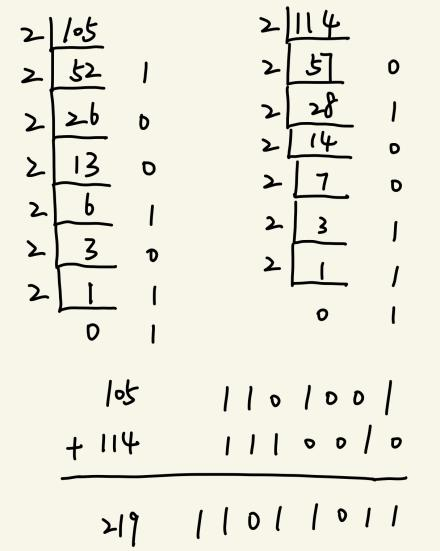 2 105
2 52 1
2 26 0
2 13 0
2 6 1
2 3 0
2 1 1
0 1
2 114
2 57 0
2 28 1
2 14 0
2 7 0
2 3 1
2 1 1
0 1
105 1101001
+ 114 1110010
219 11011011